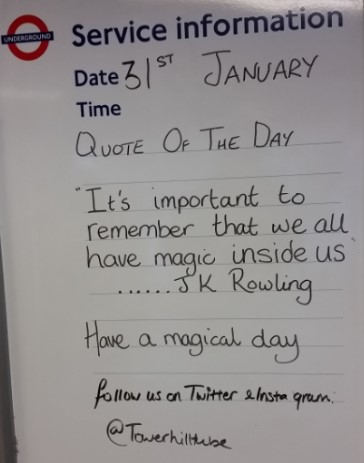 UNDERGROUND
Service information
Date 31ST JANUARY
Time
QUOTE OF THE DAY
"It's important to
remember that we all
have magic inside us"
......JK Rowling
Have a magical day
follow us on Twitter & Insta gram.
@Towerhilltube